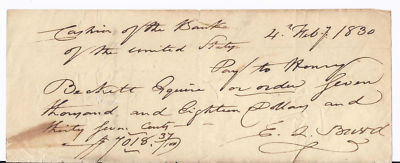 Cashier of the Bank 4th Feby 1830
of the United States
Pay to Henry
Beckett Esquire or order Seven
thousand and Eighteen Dollars and
thirty seven Cents
$7018 37/100 E. S. Burd